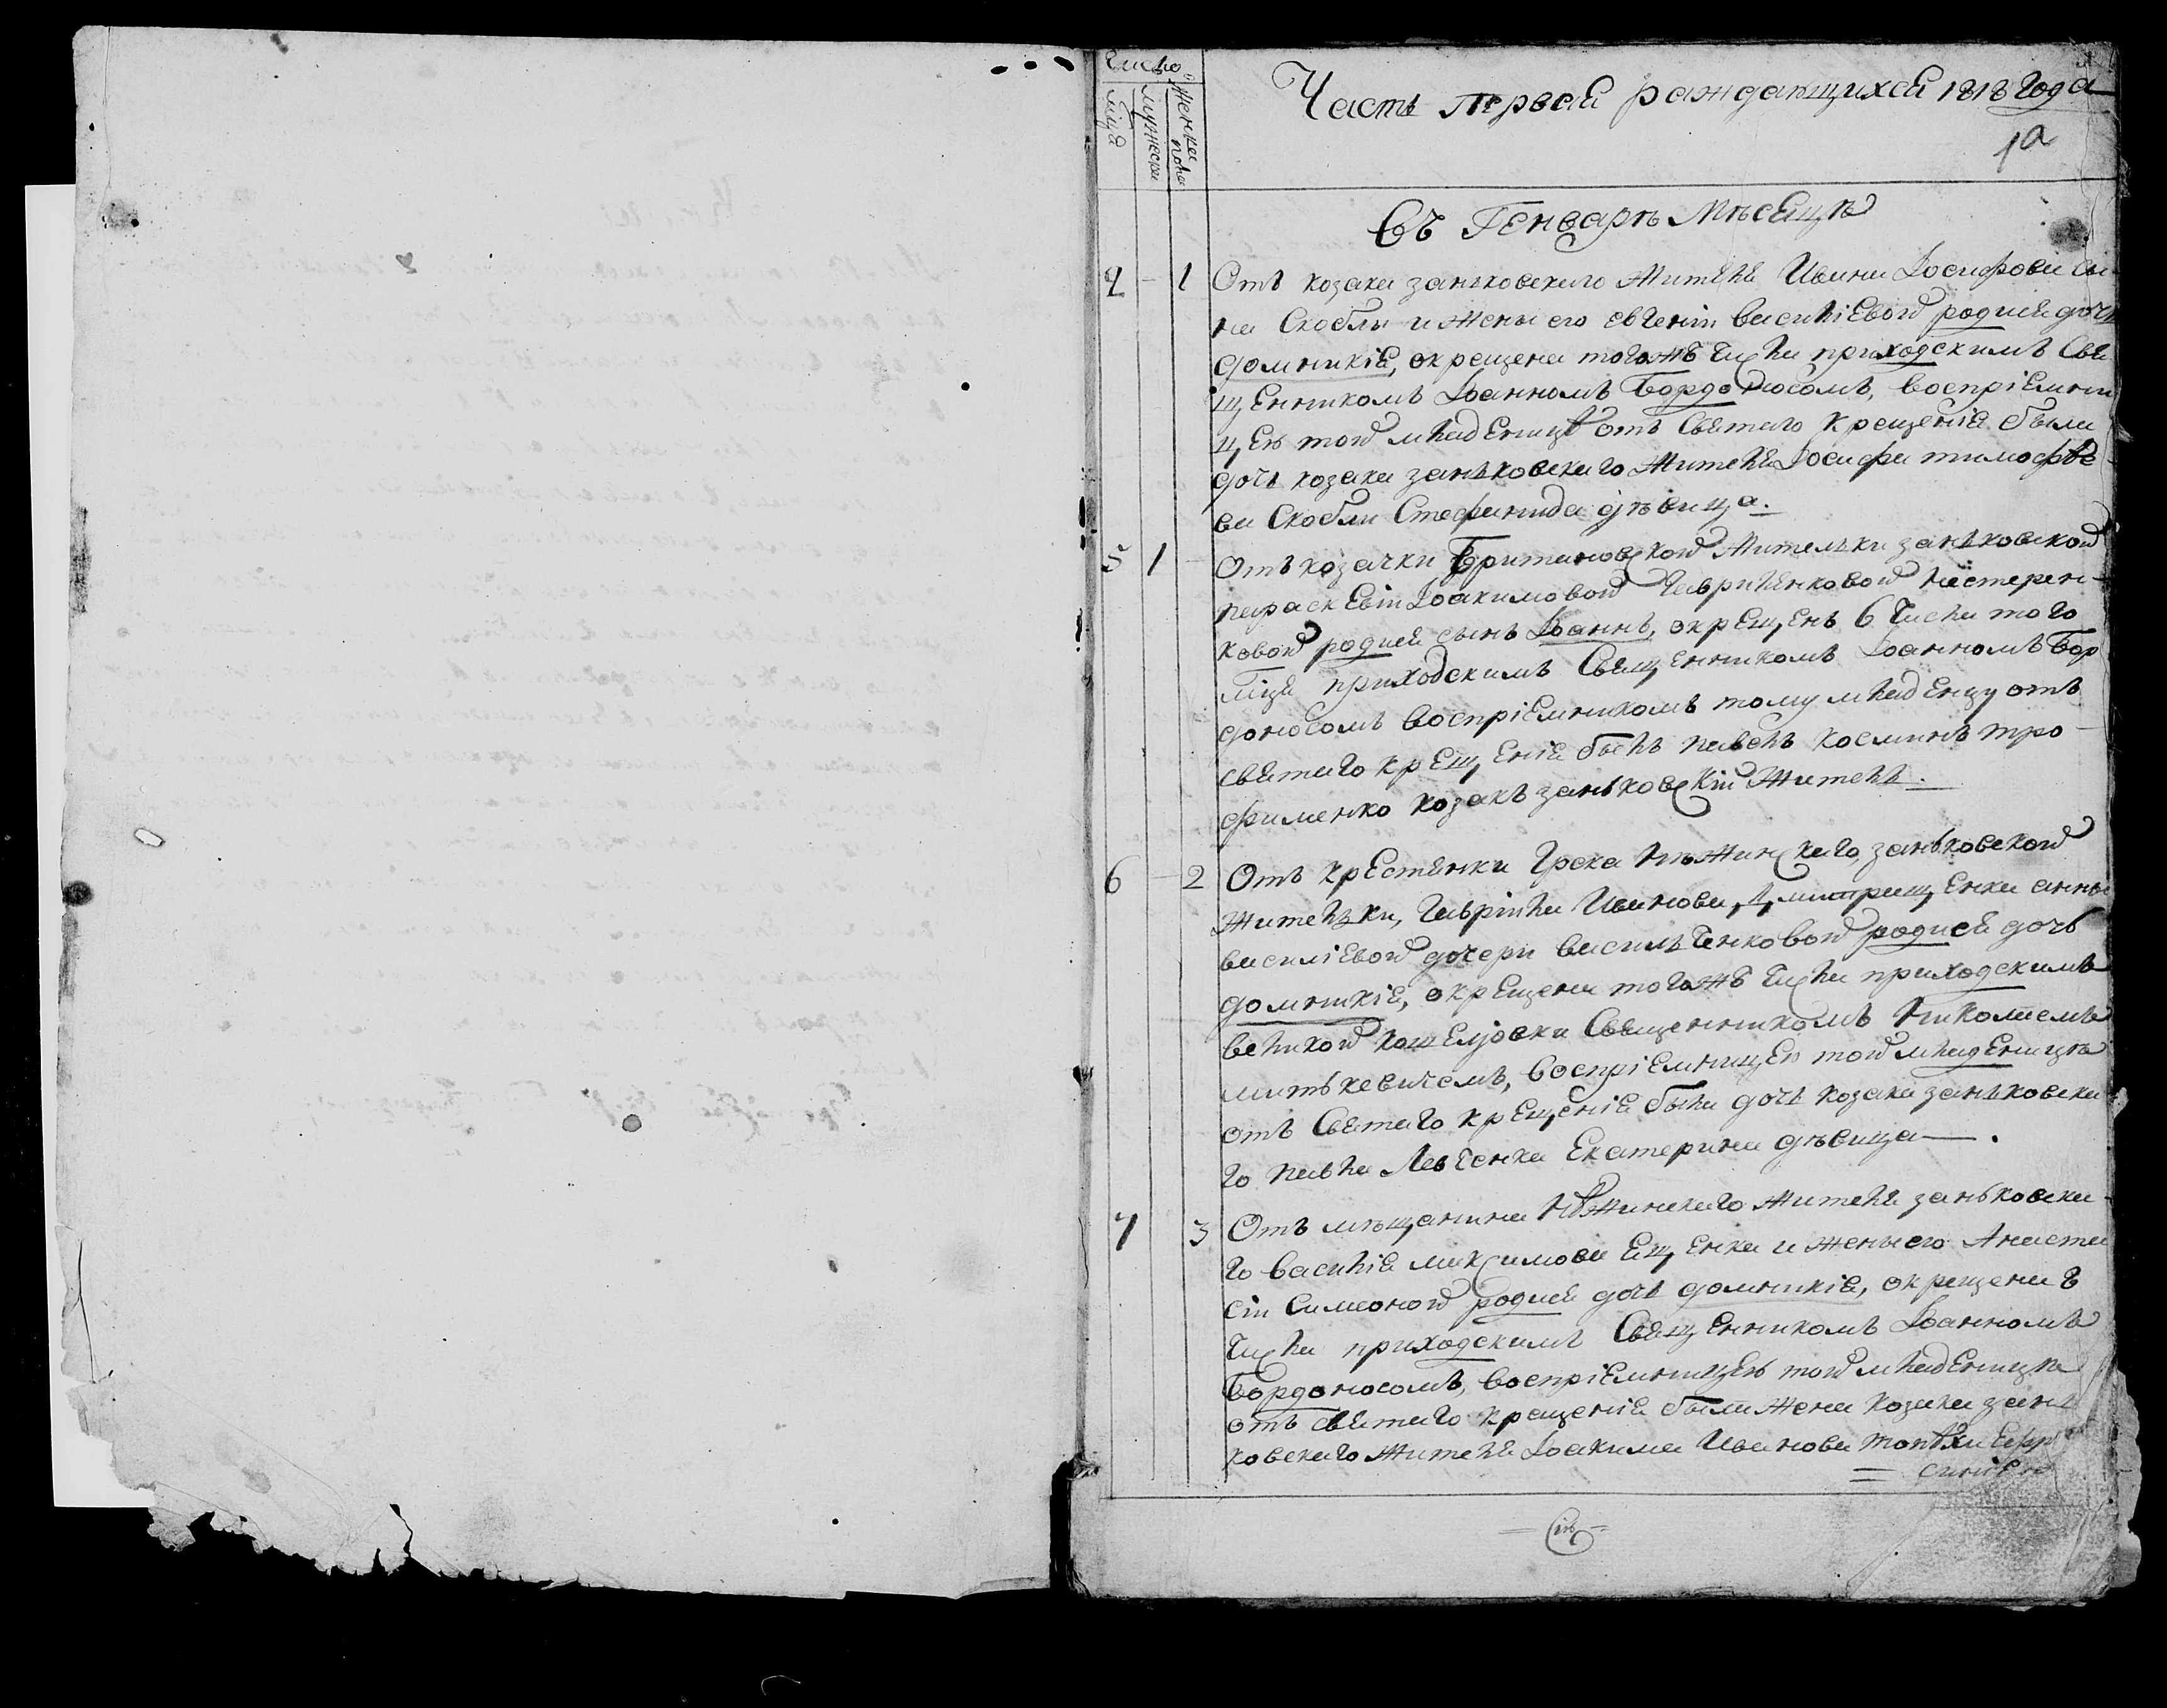 Число
мѣсяца
мужеска
женска пола
Часть первая раждающихся 1818 года
1а
Въ Генварѣ Мѣсяцѣ
2 – 1 Отъ козака заньковскаго жителя Ивана Іосифова сы-
на Скобли и жены его Евгеніи Василіевой родися дочь
Домникія, окрещена тогожъ числа приходскимъ Свя
щенникомъ Іоанномъ Бордоносомъ, воспріемни
цею той младеницѣ отъ Святаго крещенія была
дочь козака заньковскаго жителя Іосифа тимофѣе
ва Скобли Стефанида дѣвица.
5 1 – Отъ козачки Британовской жительки заньковской
параскевіи Іоакимовой Гавриленковой Нестерен-
ковой родися сынъ Іоаннъ, окрещенъ 6 числа того
мѣсяца приходскимъ Священникомъ Іоанномъ Бор
доносомъ воспріемникомъ тому младенцу отъ
святаго крещенія былъ павелъ косминъ тро-
фименко козакъ заньковскій житель.
6 – 2 Отъ крестянки Грека Нѣжинскаго, заньковской
жительки, Гавріила Иванова, Дмитрищенка анны
василіевой дочери василченковой родися дочь
домникія, окрещена тогожъ числа приходскимъ
великой кошелювки Священникомъ Николаемъ
митькевичемъ, воспріемницею той младеницѣ
отъ Святаго крещенія была дочь козака заньковска
го павла Левченка Екатерина дѣвица.
7 3 Отъ мѣщанина Нѣжинскаго жителя заньковска-
го василія максимова Ященка и жены его Анаста
сіи Симеоной родися дочь домникія, окрещена 8
числа приходскимъ Священникомъ Іоанномъ
Бордоносомъ, воспріемницею той младеницѣ
отъ святаго крещенія была жена козака зань
ковскаго жителя Іоакима Иванова